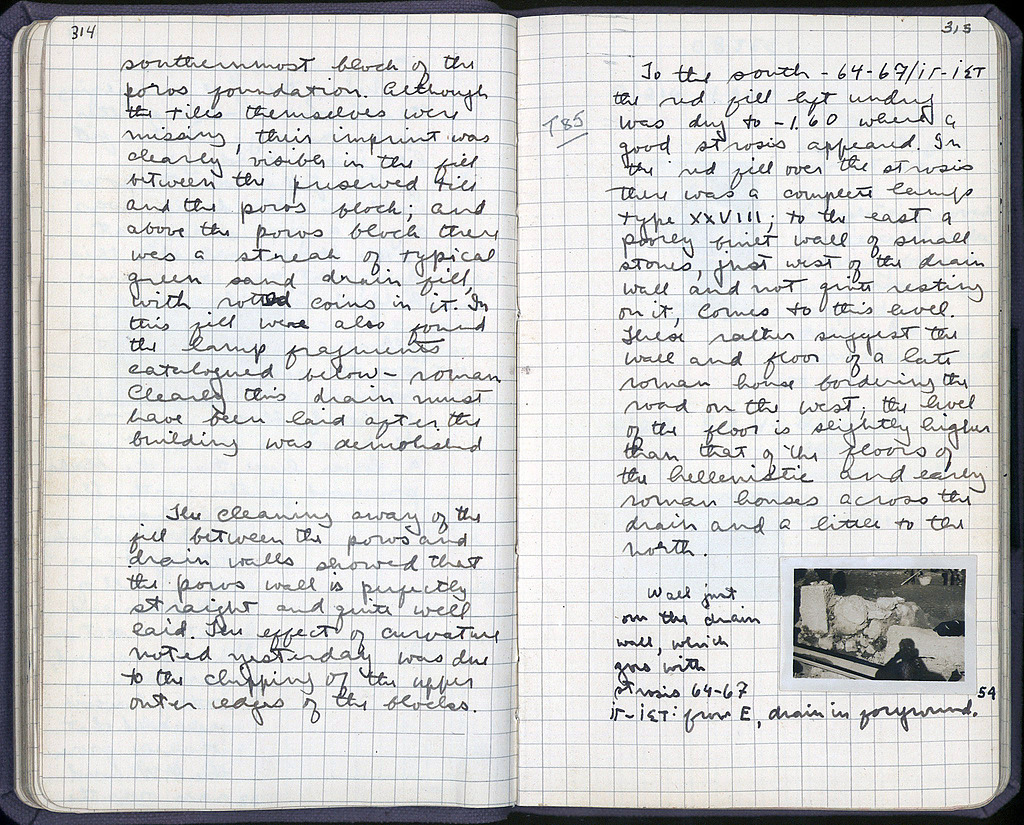 314
southernmost block of the
poros foundation. Although
the tiles themselves were
missing, their imprint was
clearly visible in the fill
between the preserved tile
and the poros block; and
above the poros block there
was a streak of typical
green sand drain fill,
with rotted coins in it. In
this fill were also found
the lamp fragments
catalogued below - roman
Clearly this drain must
have been laid after the
building was demolished
The cleaning away of the
fill between the poros and
drain walls showed that
the poros wall is perfectly
straight and quite well
laid. The effect of curvature
noted yesterday was due
to the chipping of the upper
outer edges of the blocks.
315
To the south - 64-67/ΙΓ-ΙΣΤ
the red fill left undug
785
was dug to -1.60 where a
good strosis appeared. In
the red fill over the strosis
there was a complete lamp
type XXVIII; to the east a
poorly built wall of small
stones, just west of the drain
wall and not quite resting
on it, comes to this level.
These rather suggest the
wall and floor of a late
roman house bordering the
road on the west; the level
of the floor is slightly higher
than that of the floors of
the hellenistic and early
roman houses across the
drain and a little to the
north.
Wall just
on the drain
wall, which
goes with
strosis 64-67
ΙΓ-ΙΣΤ: from E, drain in foreground.
54